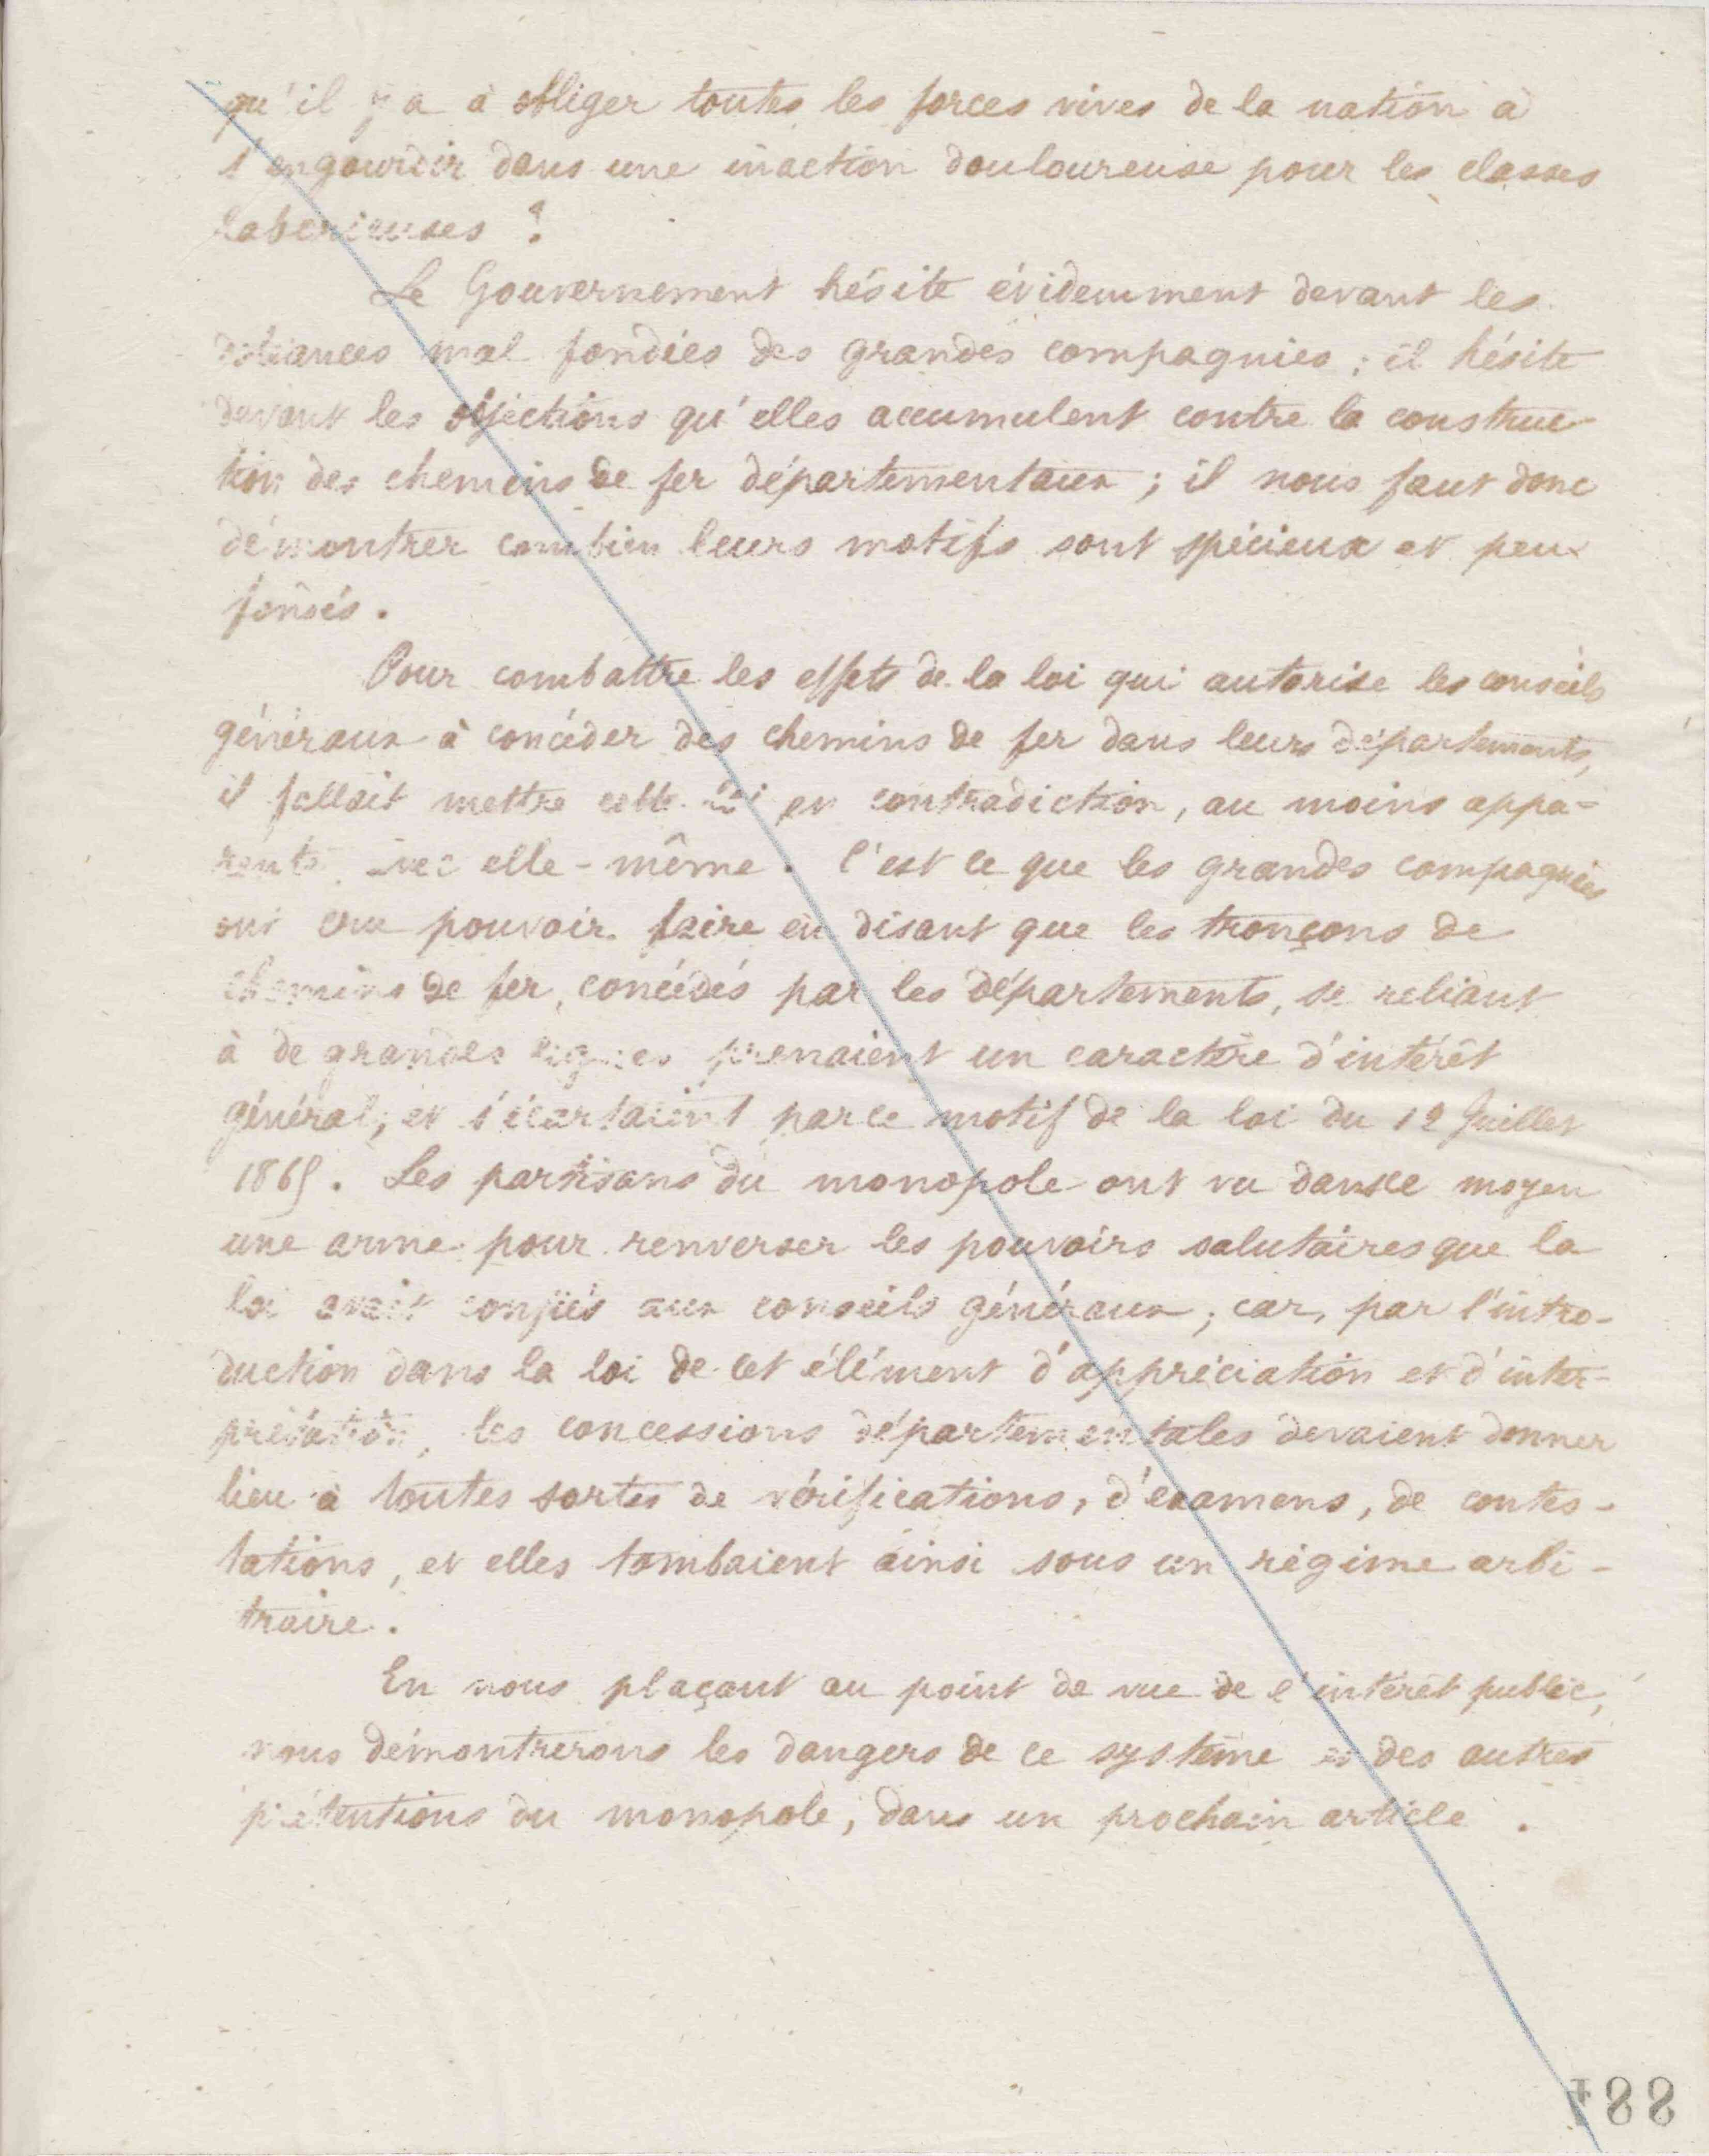 qu'il y a à obliger toutes les forces vives de la nation à
s'engourdir dans une inaction douloureuse pour les classes
laborieuses ?
Le Gouvernement hésite évidemment devant les
doléances mal fondées des grandes compagnies ; il hésite
devant les objections qu'elles accumulent contre la construc-
tion des chemins de fer départementaux ; il nous faut donc
démontrer combien leurs motifs sont spécieux et peu
fondés .
Pour combattre les effets de la loi qui autorise les conseils
généraux à concéder des chemins de fer dans leurs départements,
il fallait mettre cette loi en contradiction, au moins appa-
rente avec elle-même . C'est ce que les grandes compagnies
ont cru pouvoir faire en disant que les tronçons de
chemins de fer, concédés par les départements, se reliant
à de grandes lignes prenaient un caractère d'intérêt
général, et s'écartaient par ce motif de la loi du 12 Juillet
1865 . Les partisans du monopole ont vu dans ce moyen
une arme pour renverser les pouvoirs salutaires que la
loi avait confiés aux conseils généraux ; car, par l'intro-
duction dans la loi de cet élément d'appréciation et d'inter-
prétation, les concessions départementales devaient donner
lieu à toutes sortes de vérifications, d'examens, de contes-
tations, et elles tombaient ainsi sous un régime arbi-
traire .
En nous plaçant au point de vue de l'intérêt public,
nous démontrerons les dangers de ce système et des autres
prétentions du monopole, dans un prochain article .
188